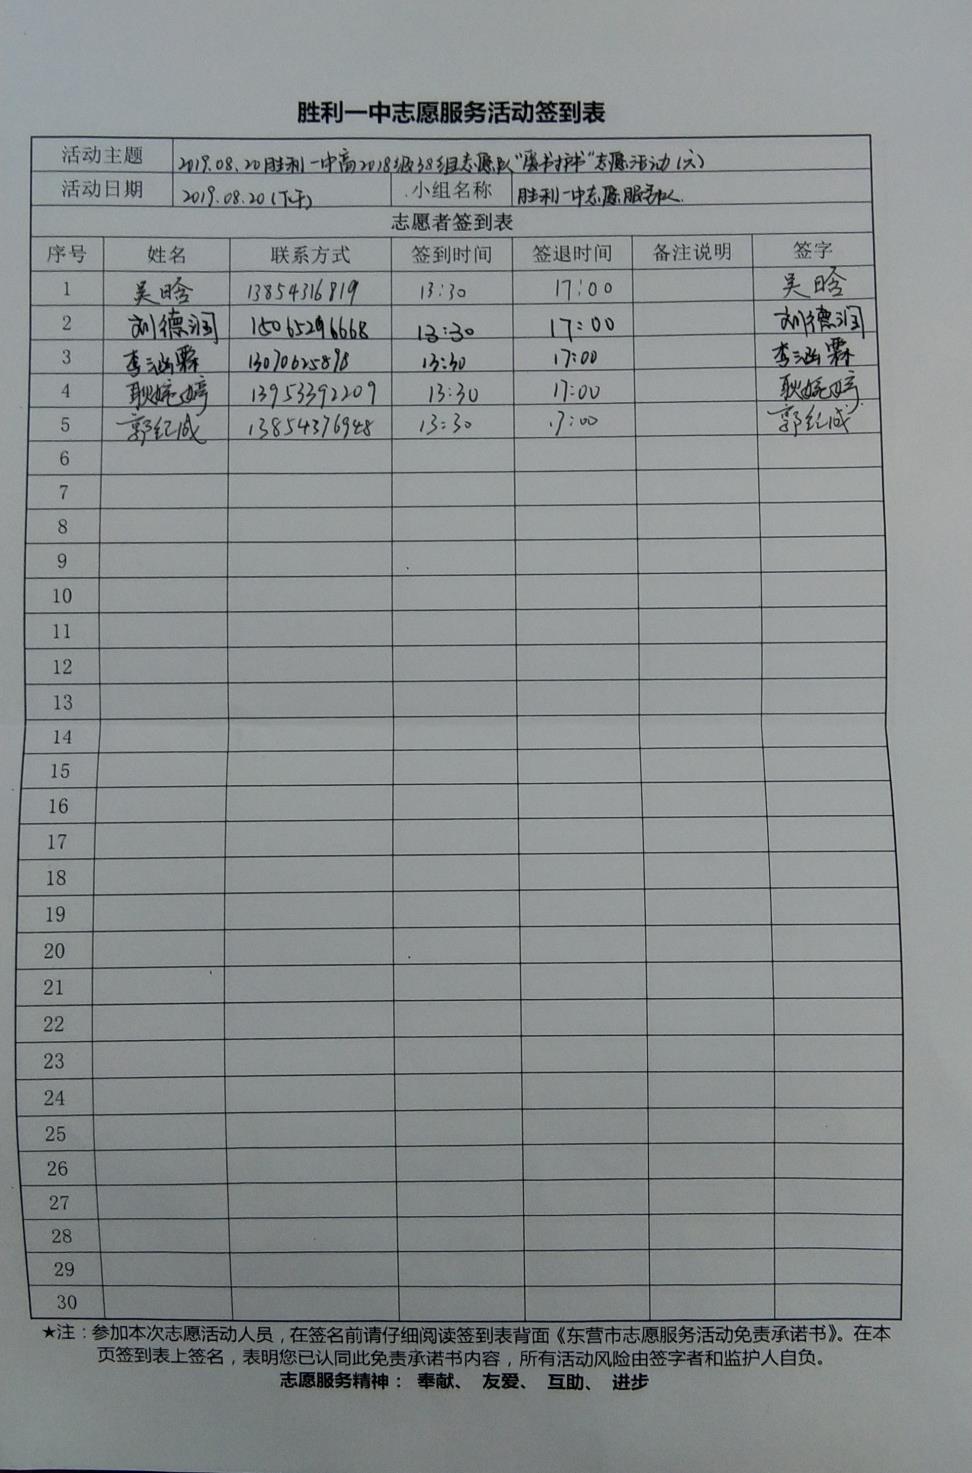 胜利一中志愿服务活动签到表
活动主题 2019.08.20胜利一中高2018级38组志愿队“图书护书”志愿活动(六)
活动日期 2019.08.20(下午) 小组名称 胜利一中志愿服务队
志愿者签到表
序号 姓名 联系方式 签到时间 签退时间 备注说明 签字
1 吴晗 13854316819 13:30 17:00 吴晗
2 刘德润 15065296668 13:30 17:00 刘德润
3 李涵霖 13070625898 13:30 17:00 李涵霖
4 耿婉婷 13953392209 13:30 17:00 耿婉婷
5 郭纪成 13854376948 13:30 17:00 郭纪成
6
7
8
9
10
11
12
13
14
15
16
17
18
19
20
21
22
23
24
25
26
27
28
29
30
★注：参加本次志愿活动人员，在签名前请仔细阅读签到表背面《东营市志愿服务活动免责承诺书》。在本
页签到表上签名，表明您已认同此免责承诺书内容，所有活动风险由签字者和监护人自负。
志愿服务精神： 奉献、 友爱、 互助、 进步